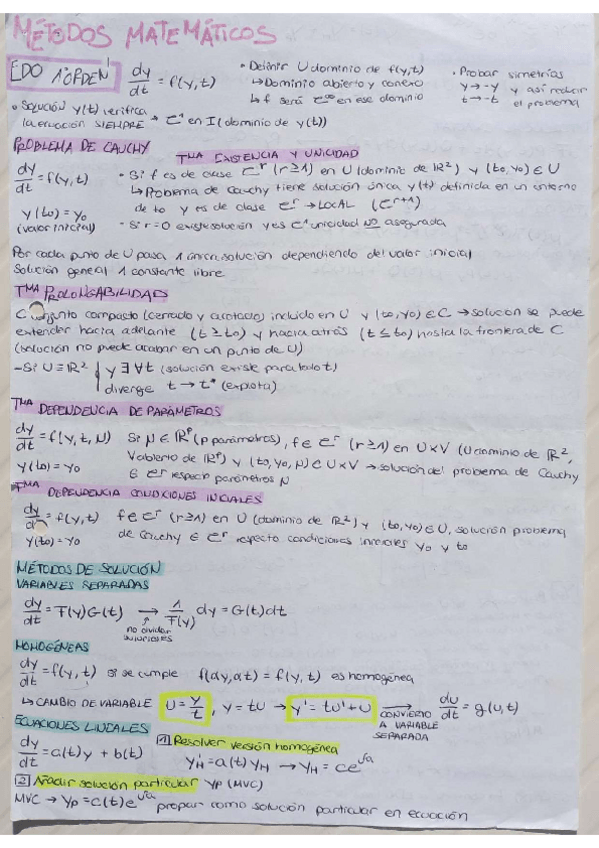 MÉTODOS MATEMÁTICOS
EDO 1ᵉʳ ORDEN dy/dt = f(y,t)
• Definir U dominio de f(y,t)
↳ Dominio abierto y conexo
↳ f será C^∞ en ese dominio
• Probar simetrías
y → -y y así reducir
t → -t el problema
• SOLUCIÓN y(t) verifica
la ecuación SIEMPRE → C¹ en I (dominio de y(t))
PROBLEMA DE CAUCHY
TMA EXISTENCIA Y UNICIDAD
dy/dt = f(y,t)
y(to) = yo
(valor inicial)
• Si f es de clase C^r (r≥1) en U (dominio de ℝ²) y (to,yo) ∈ U
↳ Problema de Cauchy tiene solución única y(t) definida en un entorno
de to y es de clase C^r → LOCAL (C^r+1)
• Si r=0 existe solución y es C¹ unicidad NO asegurada
Por cada punto de U pasa 1 única solución dependiendo del valor inicial
Solución general 1 constante libre
TMA PROLONGABILIDAD
C conjunto compacto (cerrado y acotado) incluido en U y (to,yo) ∈ C → solución se puede
extender hacia adelante (t ≥ to) y hacia atrás (t ≤ to) hasta la frontera de C
(solución no puede acabar en un punto de U)
- Si U ≡ ℝ² { y ∃ ∀t (solución existe para todo t)
diverge t → t* (explota)
TMA DEPENDENCIA DE PARÁMETROS
dy/dt = f(y,t,μ)
y(to) = yo
Si μ ∈ ℝ^p (p parámetros), f ∈ C^r (r≥1) en U×V (U dominio de ℝ²,
V abierto de ℝ^p) y (to,yo,μ) ∈ U×V → solución del problema de Cauchy
∈ C^r respecto parámetros μ
TMA DEPENDENCIA CONDICIONES INICIALES
dy/dt = f(y,t)
y(to) = yo
f ∈ C^r (r≥1) en U (dominio de ℝ²) y (to,yo) ∈ U, solución problema
de Cauchy ∈ C^r respecto condiciones iniciales yo y to
MÉTODOS DE SOLUCIÓN
VARIABLES SEPARADAS
dy/dt = F(y)G(t) → 1/F(y) dy = G(t)dt
no olvidar
HOMOGÉNEAS
dy/dt = f(y,t) si se cumple f(αy,αt) = f(y,t) es homogénea
↳ CAMBIO DE VARIABLE U = y/t, y = tU → y' = tU' + U → du/dt = g(u,t)
CONVIERTO
A VARIABLE
SEPARADA
ECUACIONES LINEALES
dy/dt = a(t)y + b(t)
1 Resolver versión homogénea
y'H = a(t)yH → yH = ce^∫a
2 Añadir solución particular yp (MVC)
MVC → yp = c(t)e^∫a propar como solución particular en ecuación